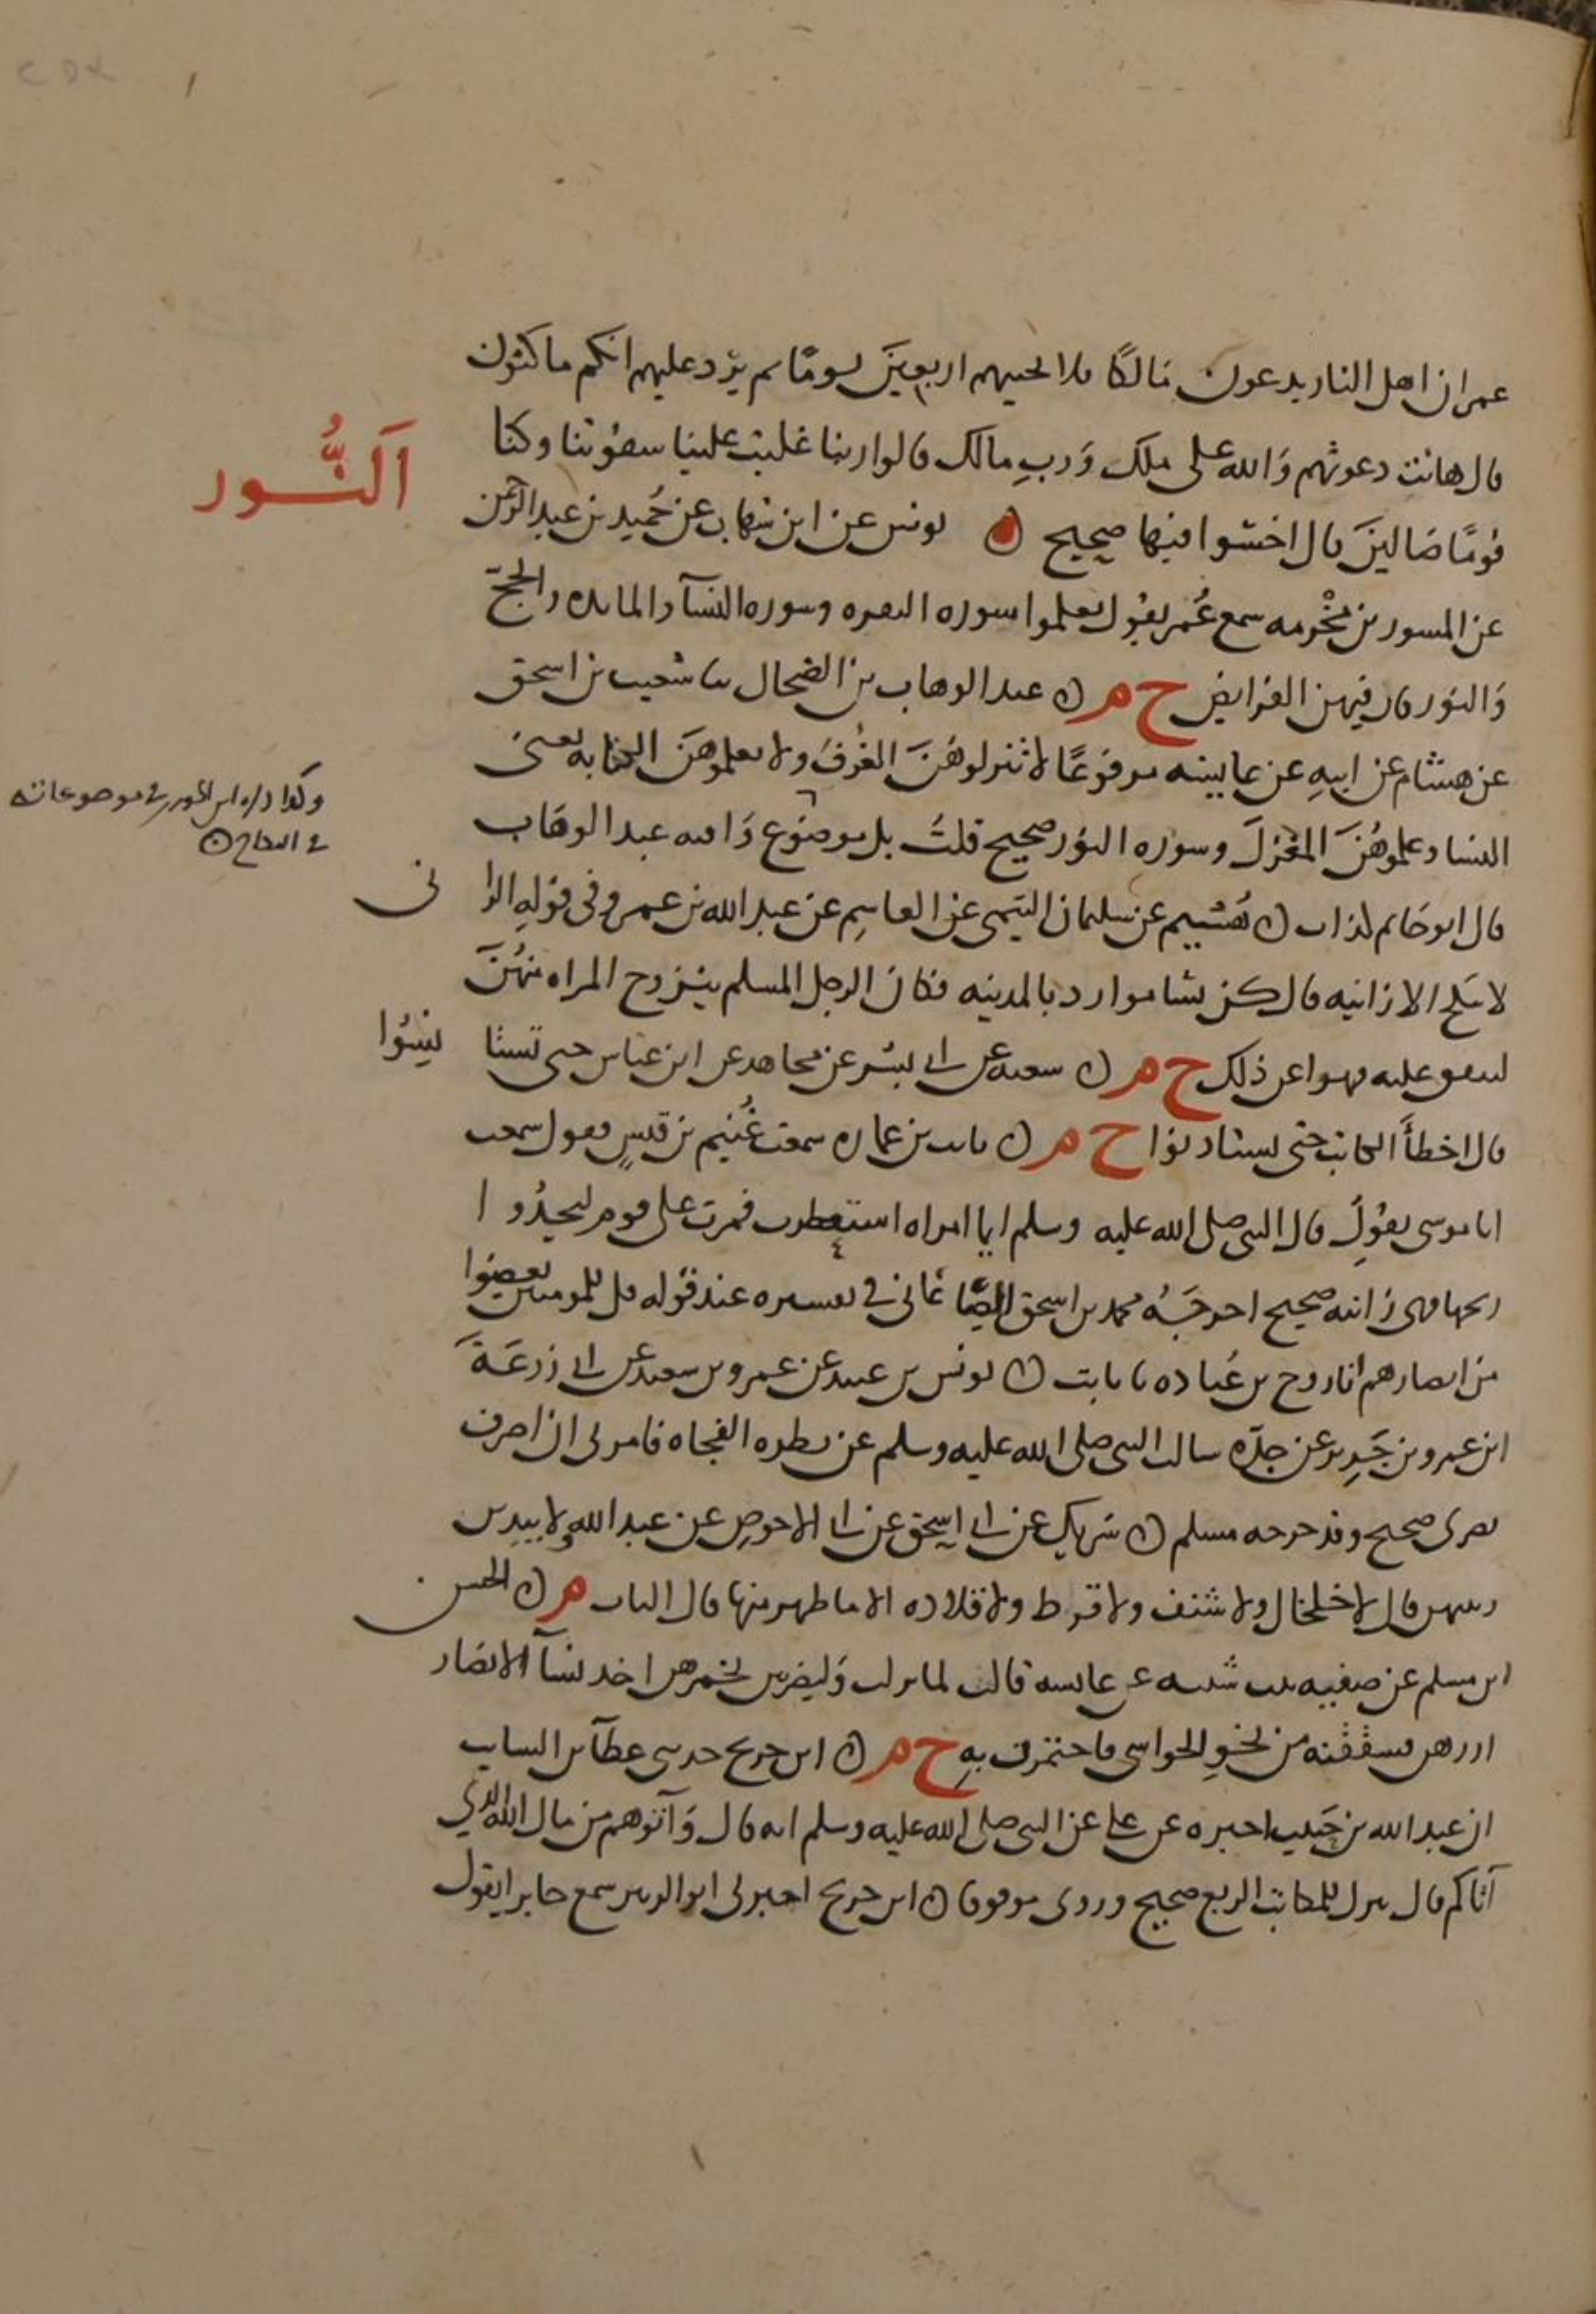 عمر ان اهل النار يدعون مالكا فلا يجيبهم اربعين يوما ثم يرد عليهم انكم ماكثون
قال هانت دعوتهم والله على ملك ورب مالك قالوا ربنا غلبت علينا شقوتنا وكنا
النور
قوما ضالين قال اخسئوا فيها صحيح ن يونس عن ابن شهاب عن حميد بن عبد الرحمن
عن المسور بن مخرمه سمع عمر يقول تعلموا سوره البقره وسوره النساء والمائده والحج
والنور فان فيهن الفرايض خ م ن عبد الوهاب بن الضحاك ثنا شعيب بن اسحق
عن هشام عن ابيه عن عايشه مرفوعا لا تنزلوهن الغرف ولا تعلموهن الكتابه يعني
وكذا ذكره ابن الجوزي في موضوعاته
في النكاح ن
النساء وعلموهن المغزل وسوره النور صحيح قلت بل موضوع وافته عبد الوهاب
قال ابو حاتم كذاب ن هشيم عن سليمان التيمي عن القاسم عن عبد الله بن عمرو في قوله الزا
ني
لا ينكح الا زانيه قال كن نساء موارد بالمدينه فكان الرجل المسلم يتزوج المراه منهن
لتنفق عليه فنهوا عن ذلك خ م ن شعبه عن ابي بشر عن مجاهد عن ابن عباس حتى تستا
نسوا
قال اخطأ الكاتب حتى تستاذنوا خ م ن ثابت بن عماره سمعت غنيم بن قيس يقول سمعت
ابا موسى يقول قال النبي صلى الله عليه وسلم ايما امراه استعطرت فمرت على قوم ليجدوا
ريحها فهي زانيه صحيح اخرجه محمد بن اسحق الصاغاني في تفسيره عند قوله قل للمومنين يغضوا
من ابصارهم انا روح بن عباده نا ثابت ن يونس بن عبيد عن عمرو بن سعيد عن ابي زرعة
ابن عمرو بن جرير عن جده سالت النبي صلى الله عليه وسلم عن نظره الفجاه فامرني ان اصرف
بصري صحيح وقد خرجه مسلم ن شريك عن ابي اسحق عن ابي الاحوص عن عبد الله ولا يبدين
زينتهن قال لا خلخال ولا شنف ولا قرط ولا قلاده الا ما ظهر منها قال الثياب م ن الحسن
ابن مسلم عن صفيه بنت شيبه عن عايشه قالت لما نزلت وليضربن بخمرهن اخذ نساء الانصار
ازرهن فشققنه من نحو الحواشي فاختمرن به خ م ن ابن جريج حدثني عطاء بن السايب
ان عبد الله بن حبيب اخبره عن علي عن النبي صلى الله عليه وسلم انه قال وآتوهم من مال الله الذي
آتاكم قال يترك للمكاتب الربع صحيح وروي موقوفا ن ابن جريج اخبرني ابو الزبير سمع جابرا يقول